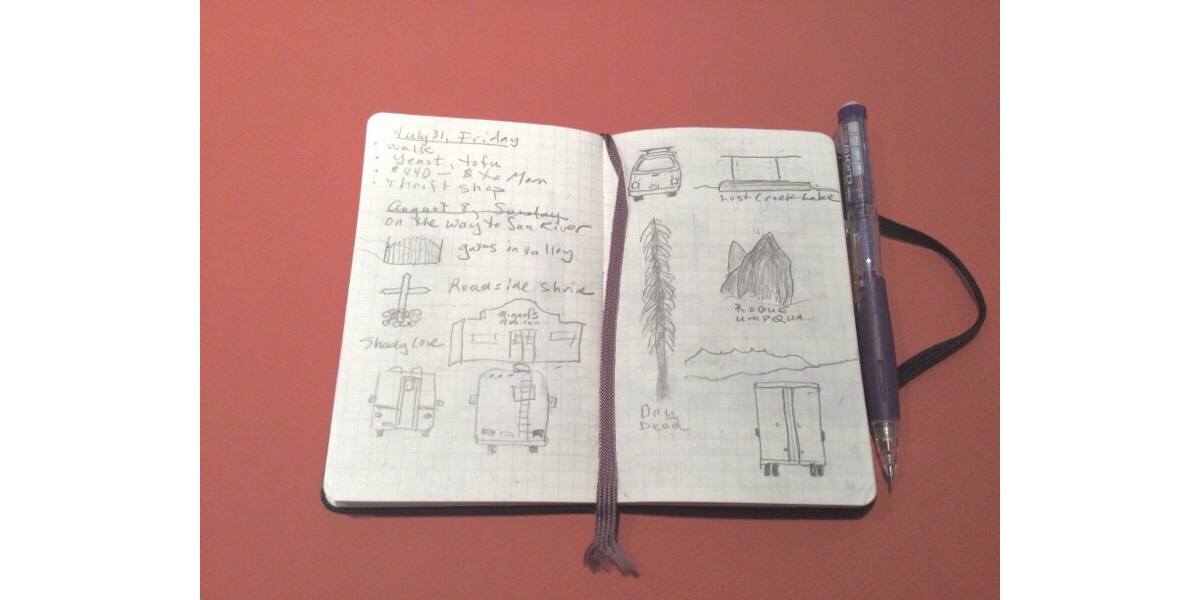 July 31, Friday
• walk
• Yeast, tofu
• $440 — $ to Mom
• Thrift shop
August 8, Sunday
on the way to Sun River
gates in valley
Roadside Shrine
Miguel's
Mexican
Shady Cove
Lost Creek Lake
ROGUE
UMPQUA
Dead
CLICKER